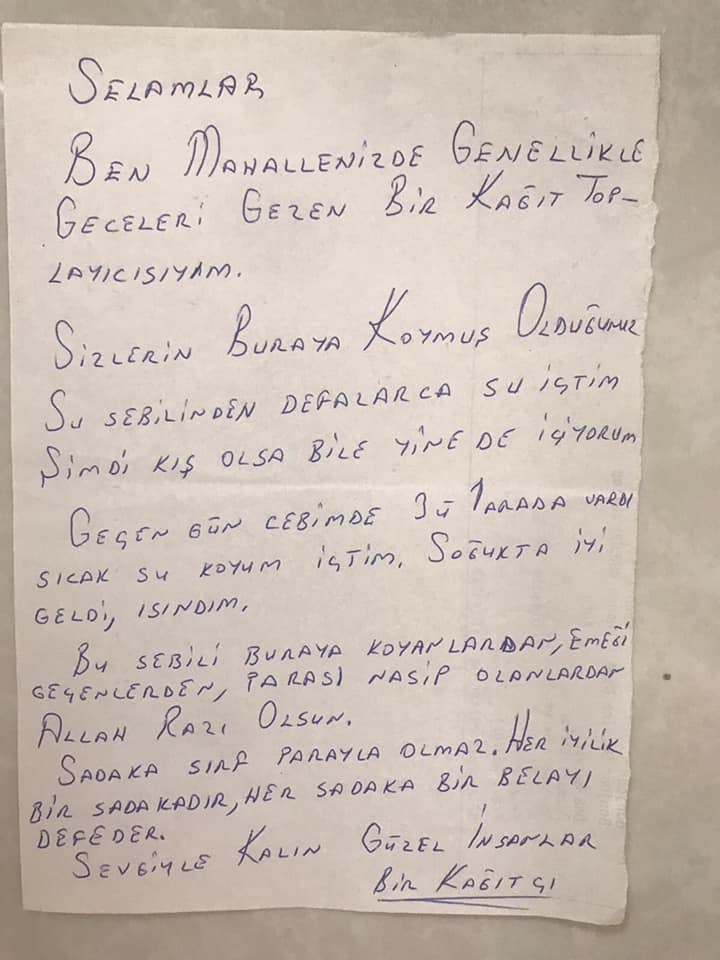 SELAMLAR
BEN MAHALLENİZDE GENELLİKLE
GECELERİ GEZEN BİR KAĞIT TOP-
LAYICISIYAM.
SİZLERİN BURAYA KOYMUŞ OLDUĞUNUZ
SU SEBİLİNDEN DEFALARCA SU İÇTİM
ŞİMDİ KIŞ OLSA BİLE YİNE DE İÇİYORUM
GEÇEN GÜN CEBİMDE 3Ü 1 ARADA VARDI
SICAK SU KOYUM İÇTİM. SOĞUKTA İYİ
GELDİ, ISINDIM.
BU SEBİLİ BURAYA KOYANLARDAN, EMEĞİ
GEÇENLERDEN, PARASI NASİP OLANLARDAN
ALLAH RAZI OLSUN.
SADAKA SIRF PARAYLA OLMAZ. HER İYİLİK
BİR SADAKADIR, HER SADAKA BİR BELAYI
DEFEDER.
SEVGİYLE KALIN GÜZEL İNSANLAR
BİR KAĞITÇI